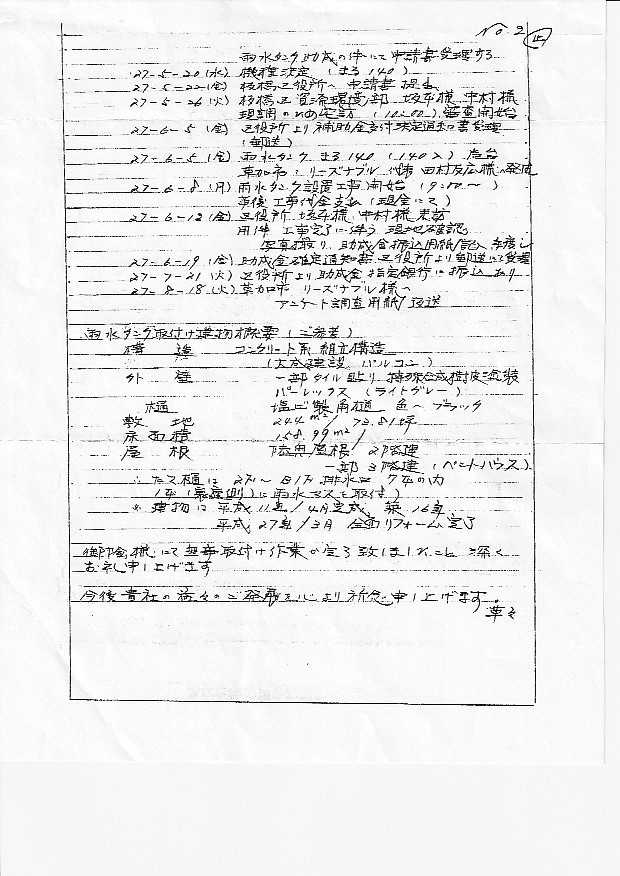 No. 2 正
雨水タンク助成の件にて申請書受理する
27-5-20(水) 機種決定 (まる140)
27-5-22(金) 板橋区役所へ申請書提出
27-5-26(火) 板橋区資源環境部 坂本様 中村様
現調のため来訪 (10:00) 審査開始
27-6-5(金) 区役所より補助金交付決定通知書受理
(郵送)
27-6-5(金) 雨水タンク まる140 (140ℓ) 壱台
草加市 リーズナブル 代表 田村 様へ発注
27-6-8(月) 雨水タンク設置工事開始 (9:00~)
事後工事代金支払 (現金にて)
27-6-12(金) 区役所 坂本様 中村様 来訪
用件 工事完了に伴う 現地確認
写真撮り 助成金振込用紙/記入
27-6-19(金) 助成金確定通知書区役所より郵送にて受理
27-7-21(火) 区役所より助成金 指定銀行に振込あり
27-8-18(火) 草加市 リーズナブル様へ
アンケート調査用紙/返送
雨水タンク取付け建物概要 (ご参考)
構造 コンクリート系組立構造
(大成建設 パルコン)
外壁 一部タイル貼り 特殊合成樹皮塗装
パーレックス (ライトグレー)
樋 塩ビ製角樋 色~ブラック
敷地 244㎡/73.81坪
床面積 158.99㎡/
屋根 陸奥屋根 2階建
一部3階建 (ペントハウス)
∴ たて樋は2F~B1F 排水口 7本の内
1本( 側)に雨水マスを取付)
※ 建物は平成11年/4月完成、築16年
平成27年/3月 全面リフォーム完了
御社様にて無事取付け作業が完了致しましたこと 深く
お礼申し上げます
今後貴社の益々のご発展を心より祈念申し上げます。
草々